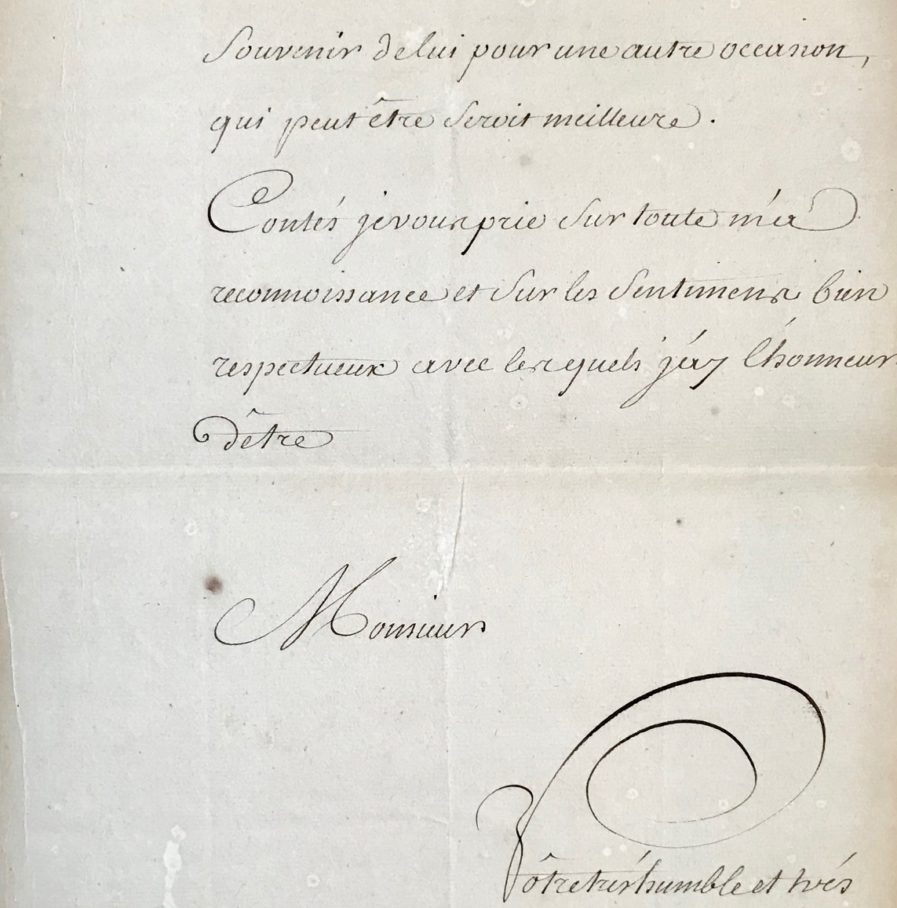 Souvenir de lui pour une autre occasion,
qui peut être seroit meilleure.
Contés je vous prie sur toute ma
reconnoissance et sur les sentimens bien
respectueux avec lesquels j'ay l'honneur
d'être
Monsieur
Vôtre trés humble et trés